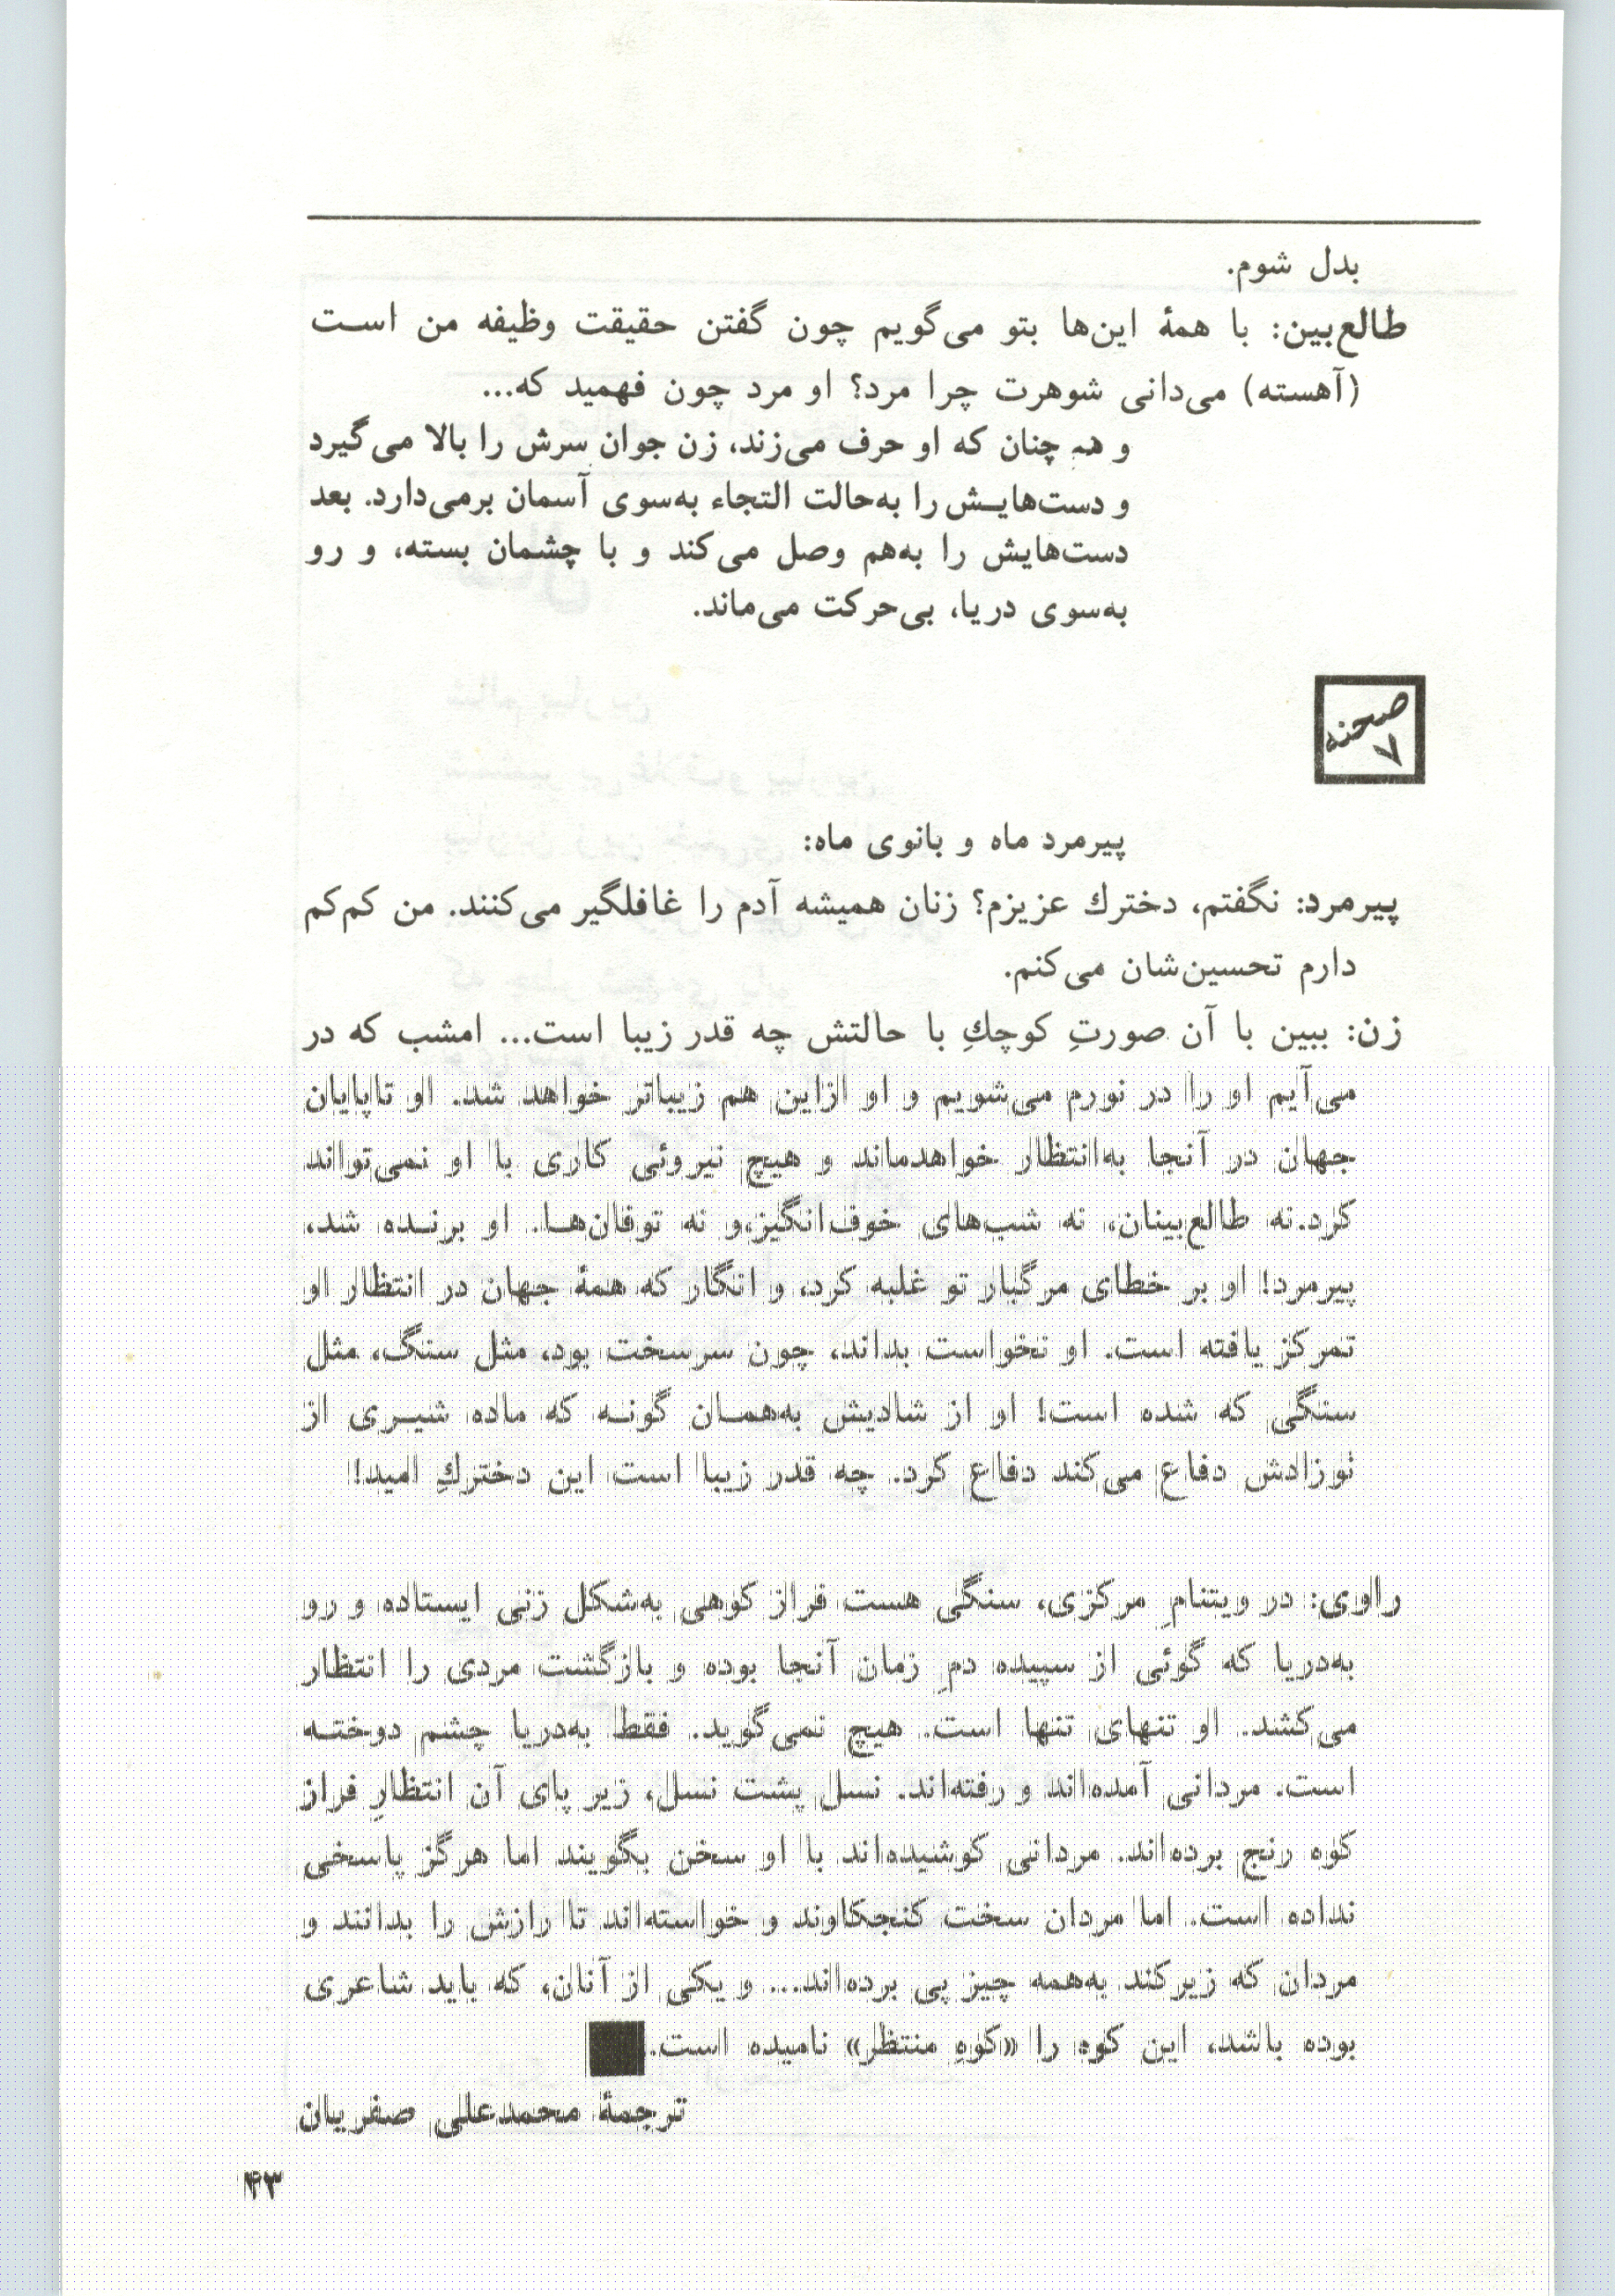 بدل شوم.
طالع‌بین: با همهٔ این‌ها بتو می‌گویم چون گفتن حقیقت وظیفه من است
(آهسته) می‌دانی شوهرت چرا مرد؟ او مرد چون فهمید که...
و هم چنان که او حرف می‌زند، زن جوان سرش را بالا می‌گیرد
و دست‌هایش را به‌حالت التجاء به‌سوی آسمان برمی‌دارد. بعد
دست‌هایش را به‌هم وصل می‌کند و با چشمان بسته، و رو
به‌سوی دریا، بی‌حرکت می‌ماند.
صحنه
۷
پیرمرد ماه و بانوی ماه:
پیرمرد: نگفتم، دخترك عزیزم؟ زنان همیشه آدم را غافلگیر می‌کنند. من کم‌کم
دارم تحسین‌شان می‌کنم.
زن: ببین با آن صورتِ کوچكِ با حالتش چه قدر زیبا است... امشب که در
می‌آیم او را در نورم می‌شویم و او ازاین هم زیباتر خواهد شد. او تاپایان
جهان در آنجا به‌انتظار خواهدماند و هیچ نیروئی کاری با او نمی‌تواند
کرد.نه طالع‌بینان، نه شب‌های خوف‌انگیز،و نه توفان‌ها. او برنده شد،
پیرمرد! او بر خطای مرگبار تو غلبه کرد، و انگار که همهٔ جهان در انتظار او
تمرکز یافته است. او نخواست بداند، چون سرسخت بود، مثل سنگ، مثل
سنگی که شده است! او از شادیش به‌همان گونه که ماده شیری از
نوزادش دفاع می‌کند دفاع کرد. چه قدر زیبا است این دختركِ امید!
راوی: در ویتنامِ مرکزی، سنگی هست فراز کوهی به‌شکل زنی ایستاده و رو
به‌دریا که گوئی از سپیده دمِ زمان آنجا بوده و بازگشت مردی را انتظار
می‌کشد. او تنهای تنها است. هیچ نمی‌گوید. فقط به‌دریا چشم دوخته
است. مردانی آمده‌اند و رفته‌اند. نسل پشت نسل، زیر پای آن انتظارِ فراز
کوه رنج برده‌اند. مردانی کوشیده‌اند با او سخن بگویند اما هرگز پاسخی
نداده است. اما مردان سخت کنجکاوند و خواسته‌اند تا رازش را بدانند و
مردان که زیرکند به‌همه چیز پی برده‌اند... و یکی از آنان، که باید شاعری
بوده باشد، این کوه را «کوهِ منتظر» نامیده است.
ترجمهٔ محمدعلی صفریان
۴۳